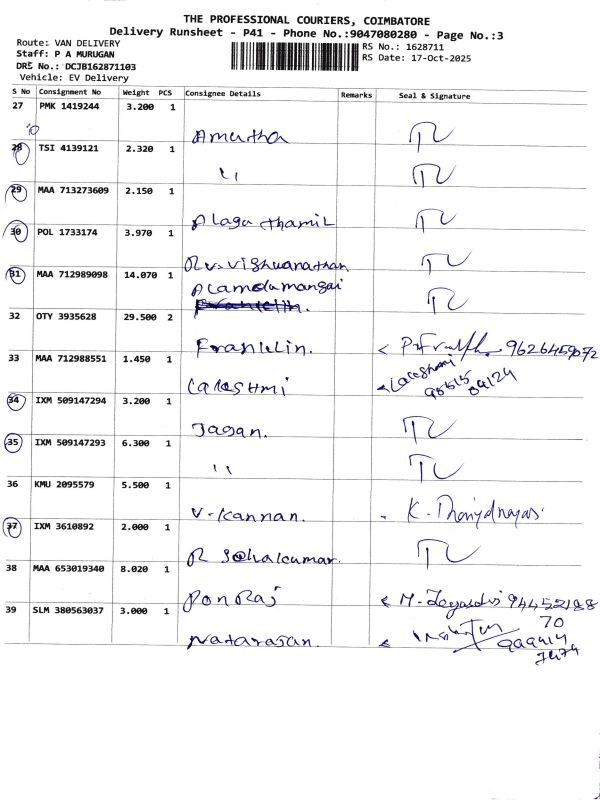 THE PROFESSIONAL COURIERS, COIMBATORE
Delivery Runsheet - P41 - Phone No.:9047080280 - Page No.:3
Route: VAN DELIVERY
Staff: P A MURUGAN
DRS No.: DCJB162871103
Vehicle: EV Delivery
RS No.: 1628711
RS Date: 17-Oct-2025
S No Consignment No Weight PCS Consignee Details Remarks Seal & Signature
27 PMK 1419244 3.200 1
Amutha
28 TSI 4139121 2.320 1
"
29 MAA 713273609 2.150 1
Alagu thamil
30 POL 1733174 3.970 1
R.V. Vishwanathan
31 MAA 712989098 14.070 1
Alamelumangai
32 OTY 3935628 29.500 2
Franklin.
33 MAA 712988551 1.450 1
Lakshmi Lakshmi
34 IXM 509147294 3.200 1
Jagan.
35 IXM 509147293 6.300 1
"
36 KMU 2095579 5.500 1
V. Kannan. K.
37 IXM 3610892 2.000 1
R
38 MAA 653019340 8.020 1
Pon Raj M. 94452188
70
39 SLM 380563037 3.000 1
Natarajan.